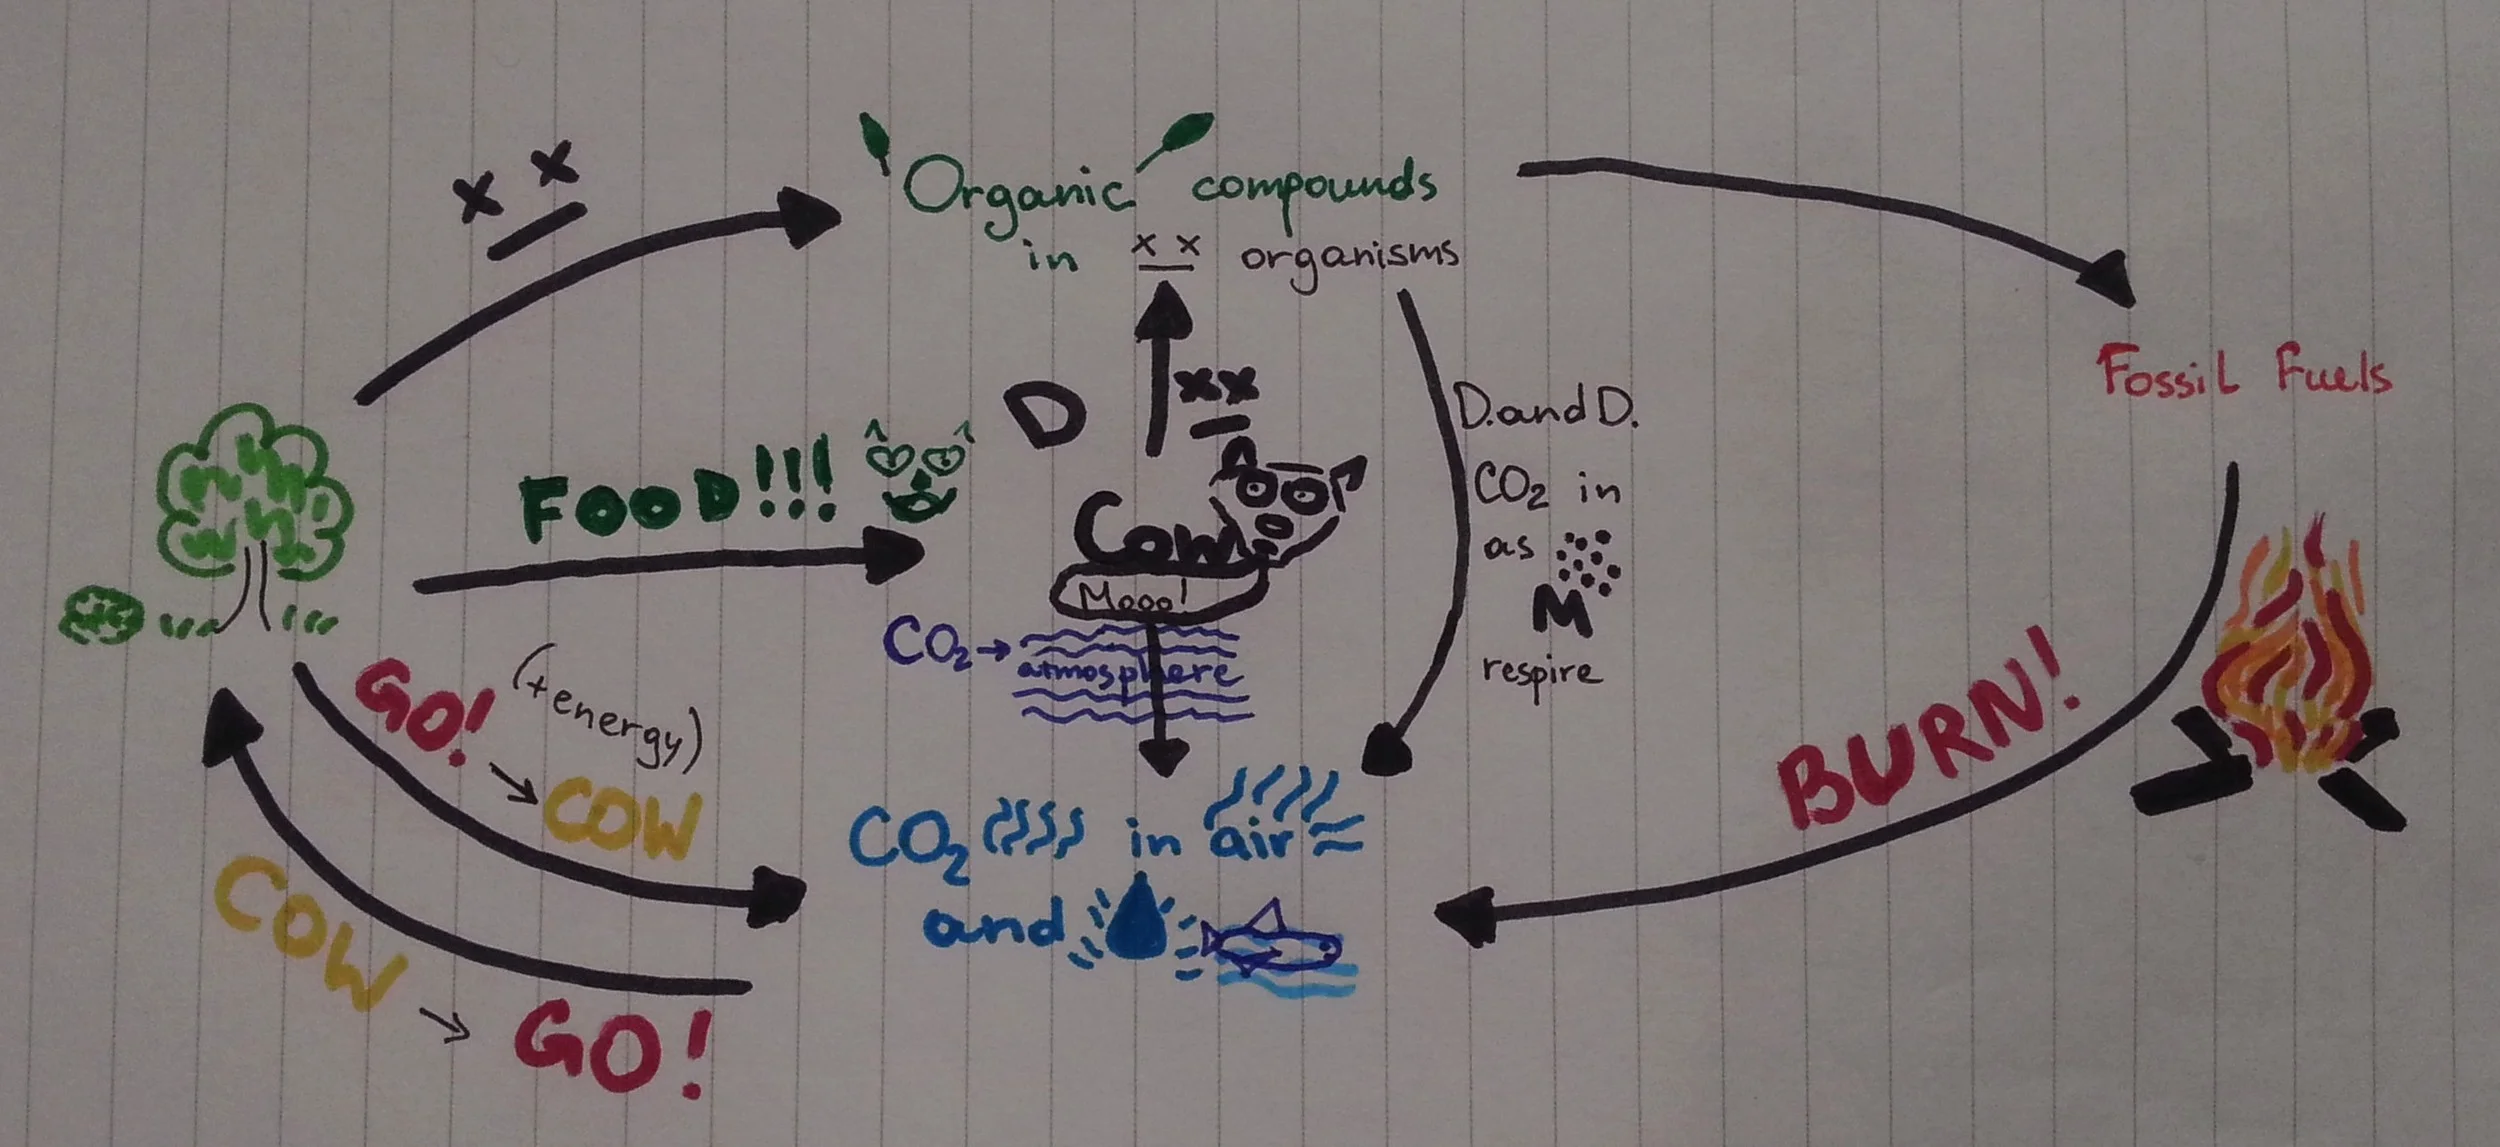 Organic compounds
in x x organisms
x x
Fossil Fuels
D
xx
D. and D.
CO2 in
as
M
respire
FOOD!!!
Cow
Mooo!
CO2 →
atmosphere
GO! (+energy)
→ COW
BURN!
CO2 in air
and
COW → GO!